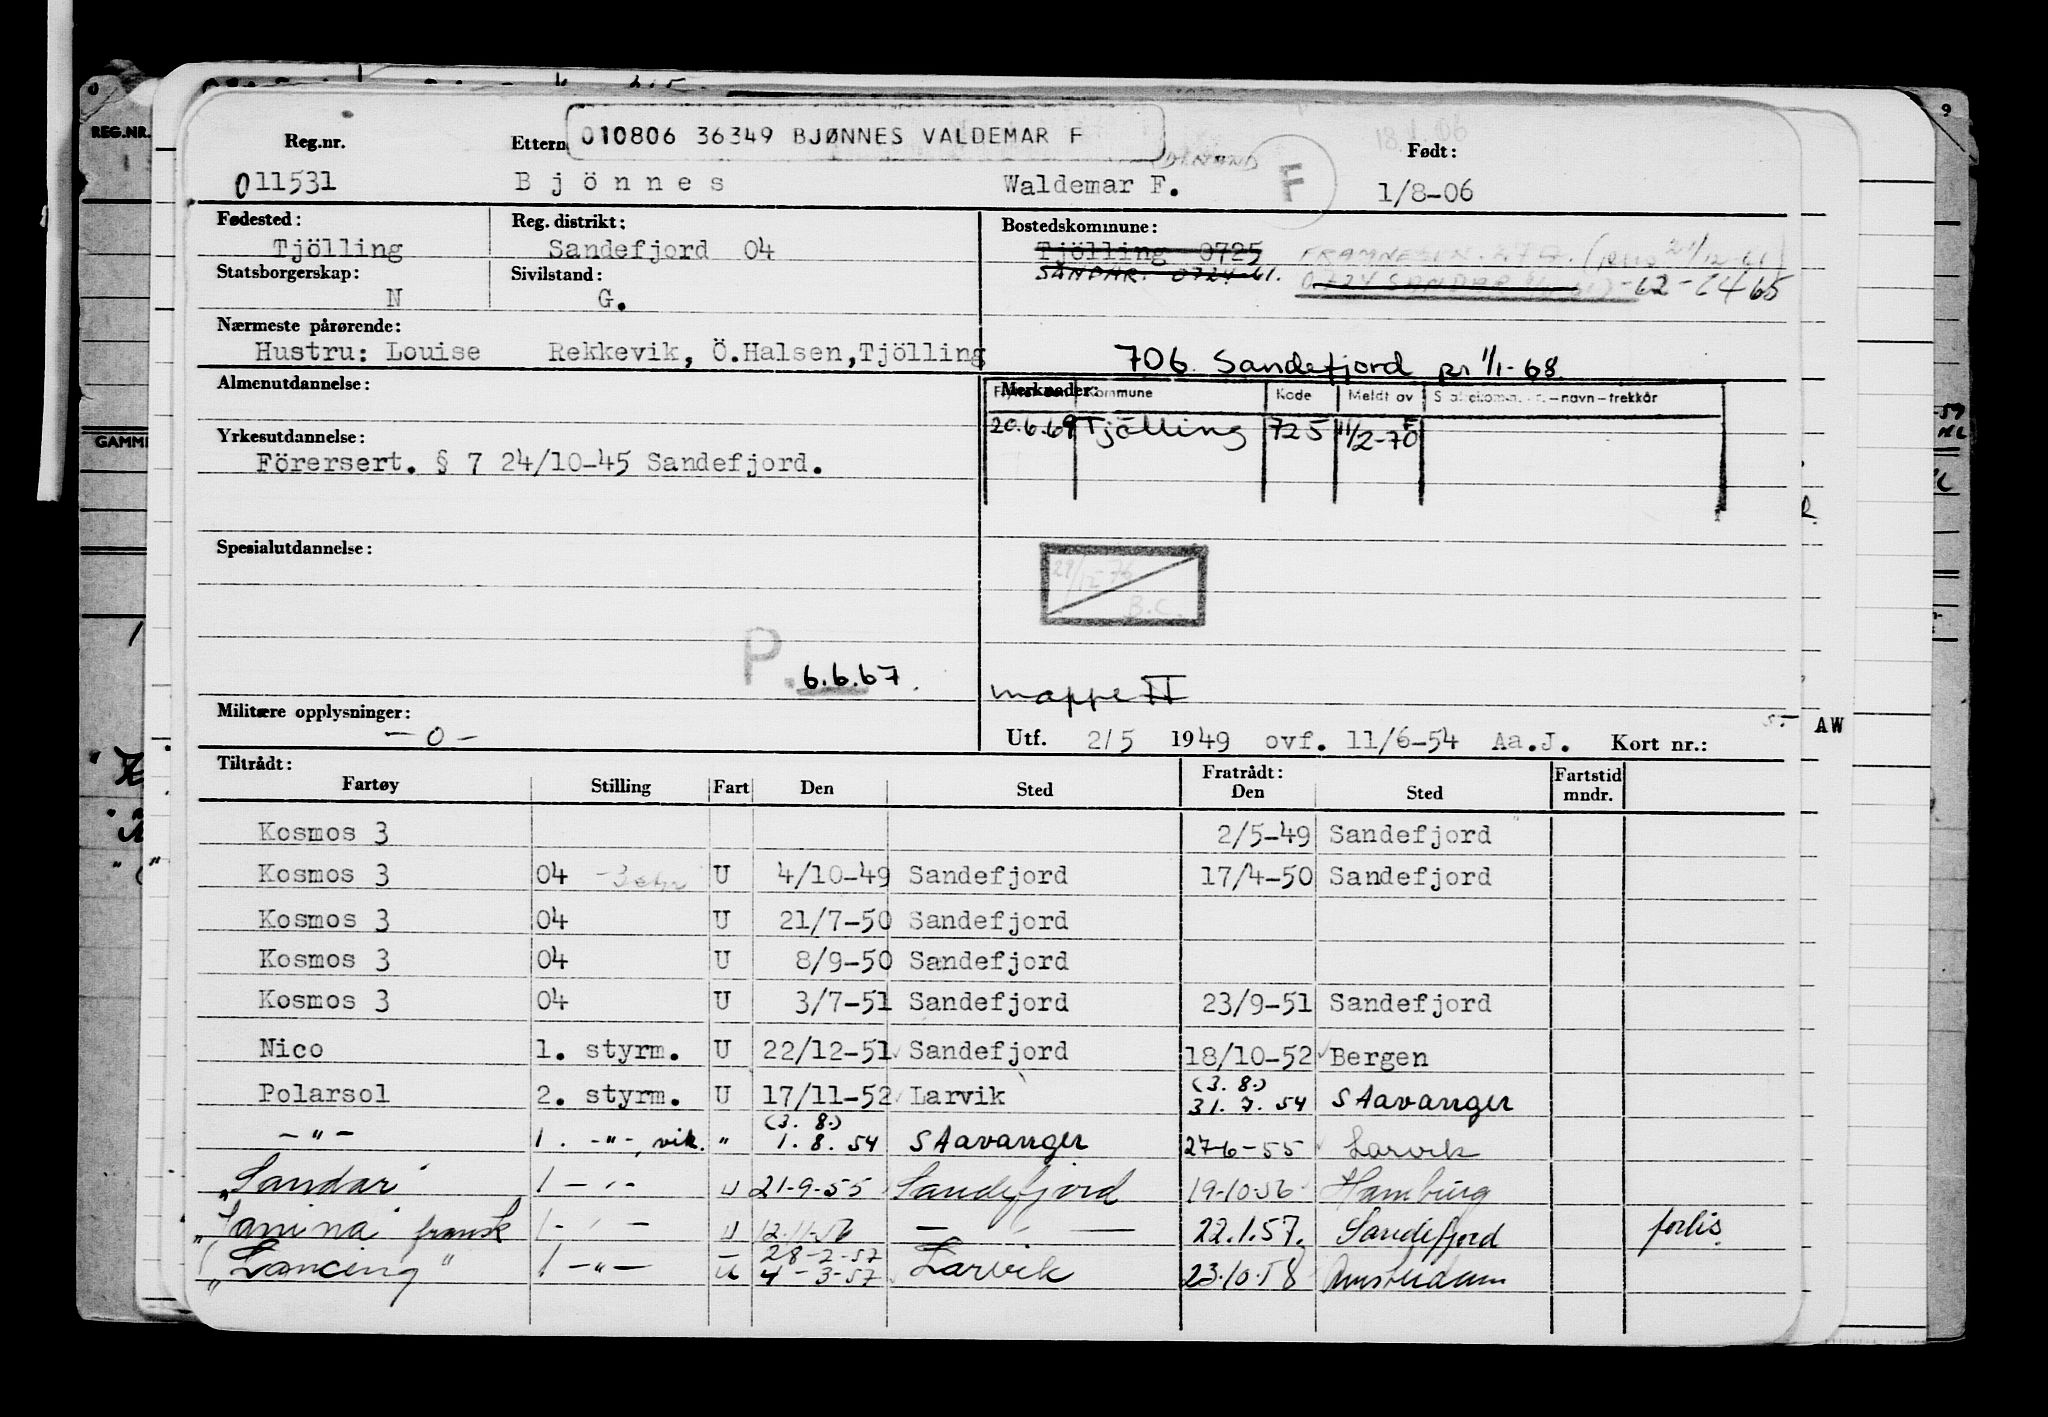 REG.NR.
010806 36349 BJØNNES VALDEMAR F
Reg.nr. Ettern Født:
011531 Bjönnes Waldemar F. F 1/8-06
Fødested: Reg. distrikt: Bostedskommune:
Tjölling Sandefjord 04 Tjölling 0725
SANDAR. 0724-61.
0724 SANDAR -62-64 65
Statsborgerskap: Sivilstand:
N G.
Nærmeste pårørende:
Hustru: Louise Rekkevik, Ö.Halsen,Tjölling
706. Sandefjord pr 1/1-68.
Almenutdannelse: Merknader:
Kommune Kode Meldt av -navn-trekkår
20.6.69 Tjølling 725 11/2-70
GAMME
Yrkesutdannelse:
Förersert. § 7 24/10-45 Sandefjord.
Spesialutdannelse:
B.C.
P. 6.6.67.
mappe II
Militære opplysninger:
- 0 -
Utf. 2/5 1949 ovf. 11/6-54 Aa.J. Kort nr.:
AW
Tiltrådt: Fratrådt: Fartstid
Fartøy Stilling Fart Den Sted Den Sted mndr.
Kosmos 3 2/5-49 Sandefjord
Kosmos 3 04 U 4/10-49 Sandefjord 17/4-50 Sandefjord
Kosmos 3 04 U 21/7-50 Sandefjord
Kosmos 3 04 U 8/9-50 Sandefjord
Kosmos 3 04 U 3/7-51 Sandefjord 23/9-51 Sandefjord
Nico 1. styrm. U 22/12-51 Sandefjord 18/10-52 Bergen
Polarsol 2. styrm. U 17/11-52 Larvik (3. 8.) 31. 7. 54 Stavanger
- " - 1. -"-, vik. " (3. 8.) 1. 8. 54 Stavanger 27-6-55 Larvik
"Sandar" 1 - " - U 21-9-55 Sandefjord 19-10-56 Hamburg
"Janina" fransk 1 - " - U 12.11-56 - " - 22.1.57. Sandefjord forlis.
"Lancing" 1 -"- U 28-2-57 4-3-57 Larvik 23.10.58 Amsterdam